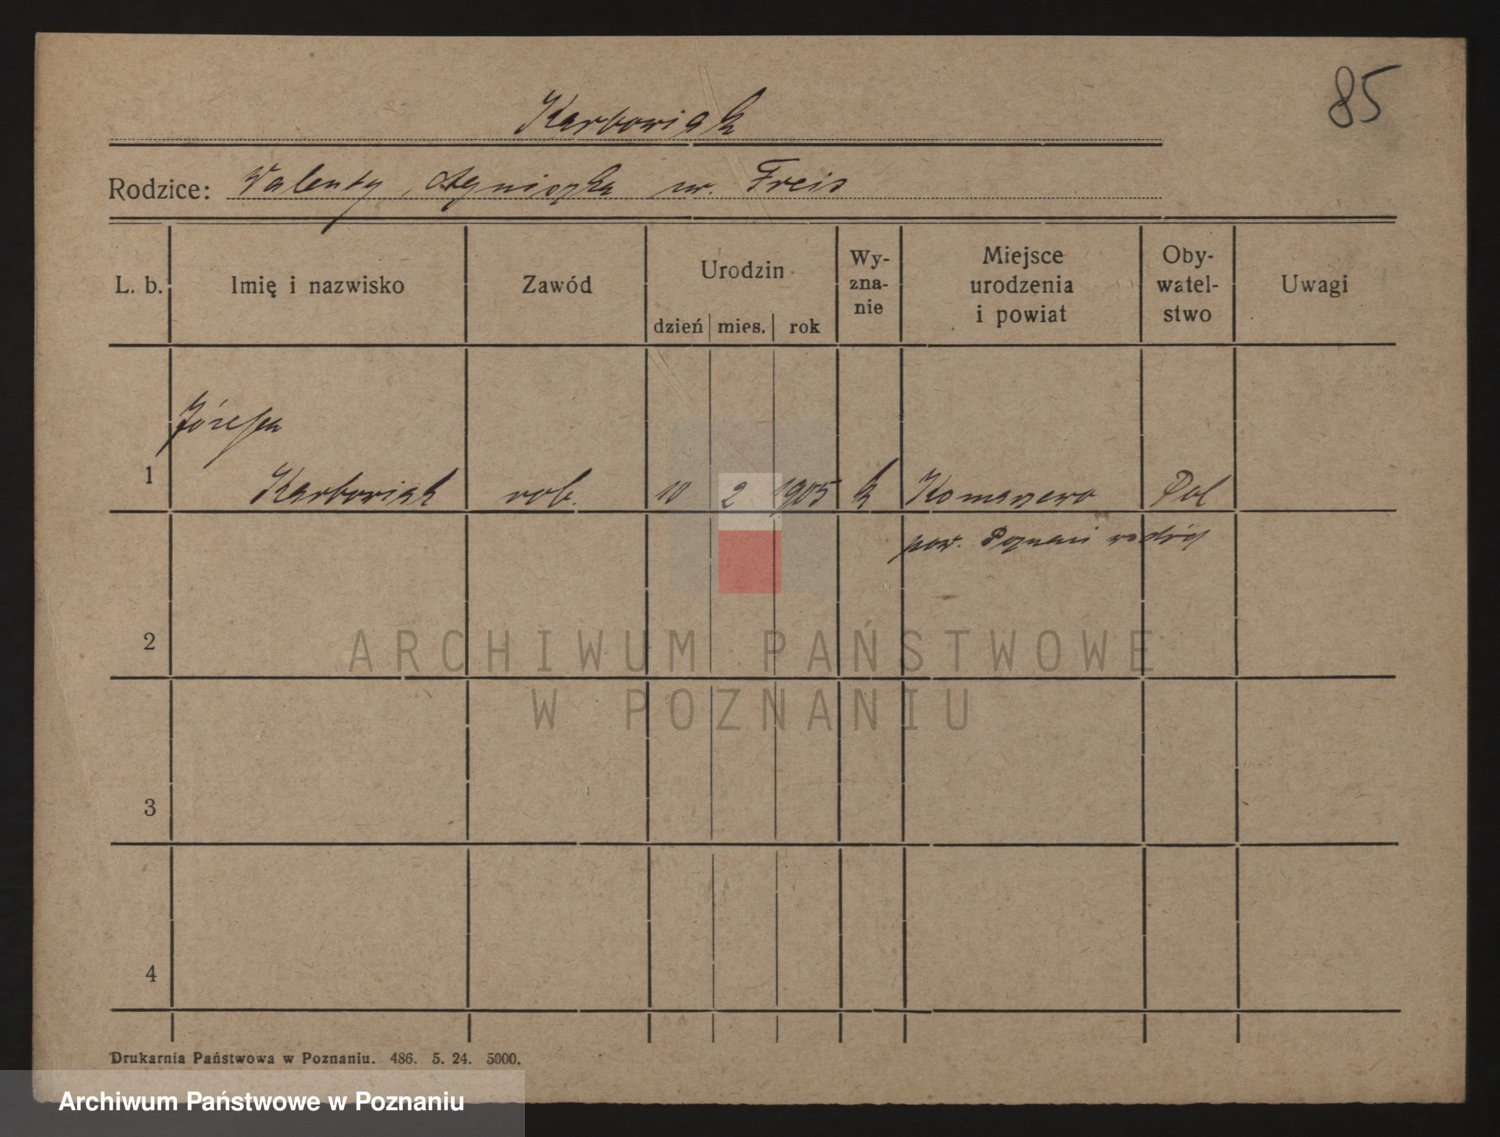 85
Karbowiak
Rodzice: Walenty, Agnieszka ur. Freis
L. b.
Imię i nazwisko
Zawód
Urodzin
dzień mies. rok
Wy-
zna-
nie
Miejsce
urodzenia
i powiat
Oby-
watel-
stwo
Uwagi
Józefa
1 Karbowiak rob. 10 2 1905 k Pol
pow. Poznań
2
3
4
Drukarnia Państwowa w Poznaniu. 486. 5. 24. 5000.
ARCHIWUM PAŃSTWOWE
W POZNANIU
Archiwum Państwowe w Poznaniu